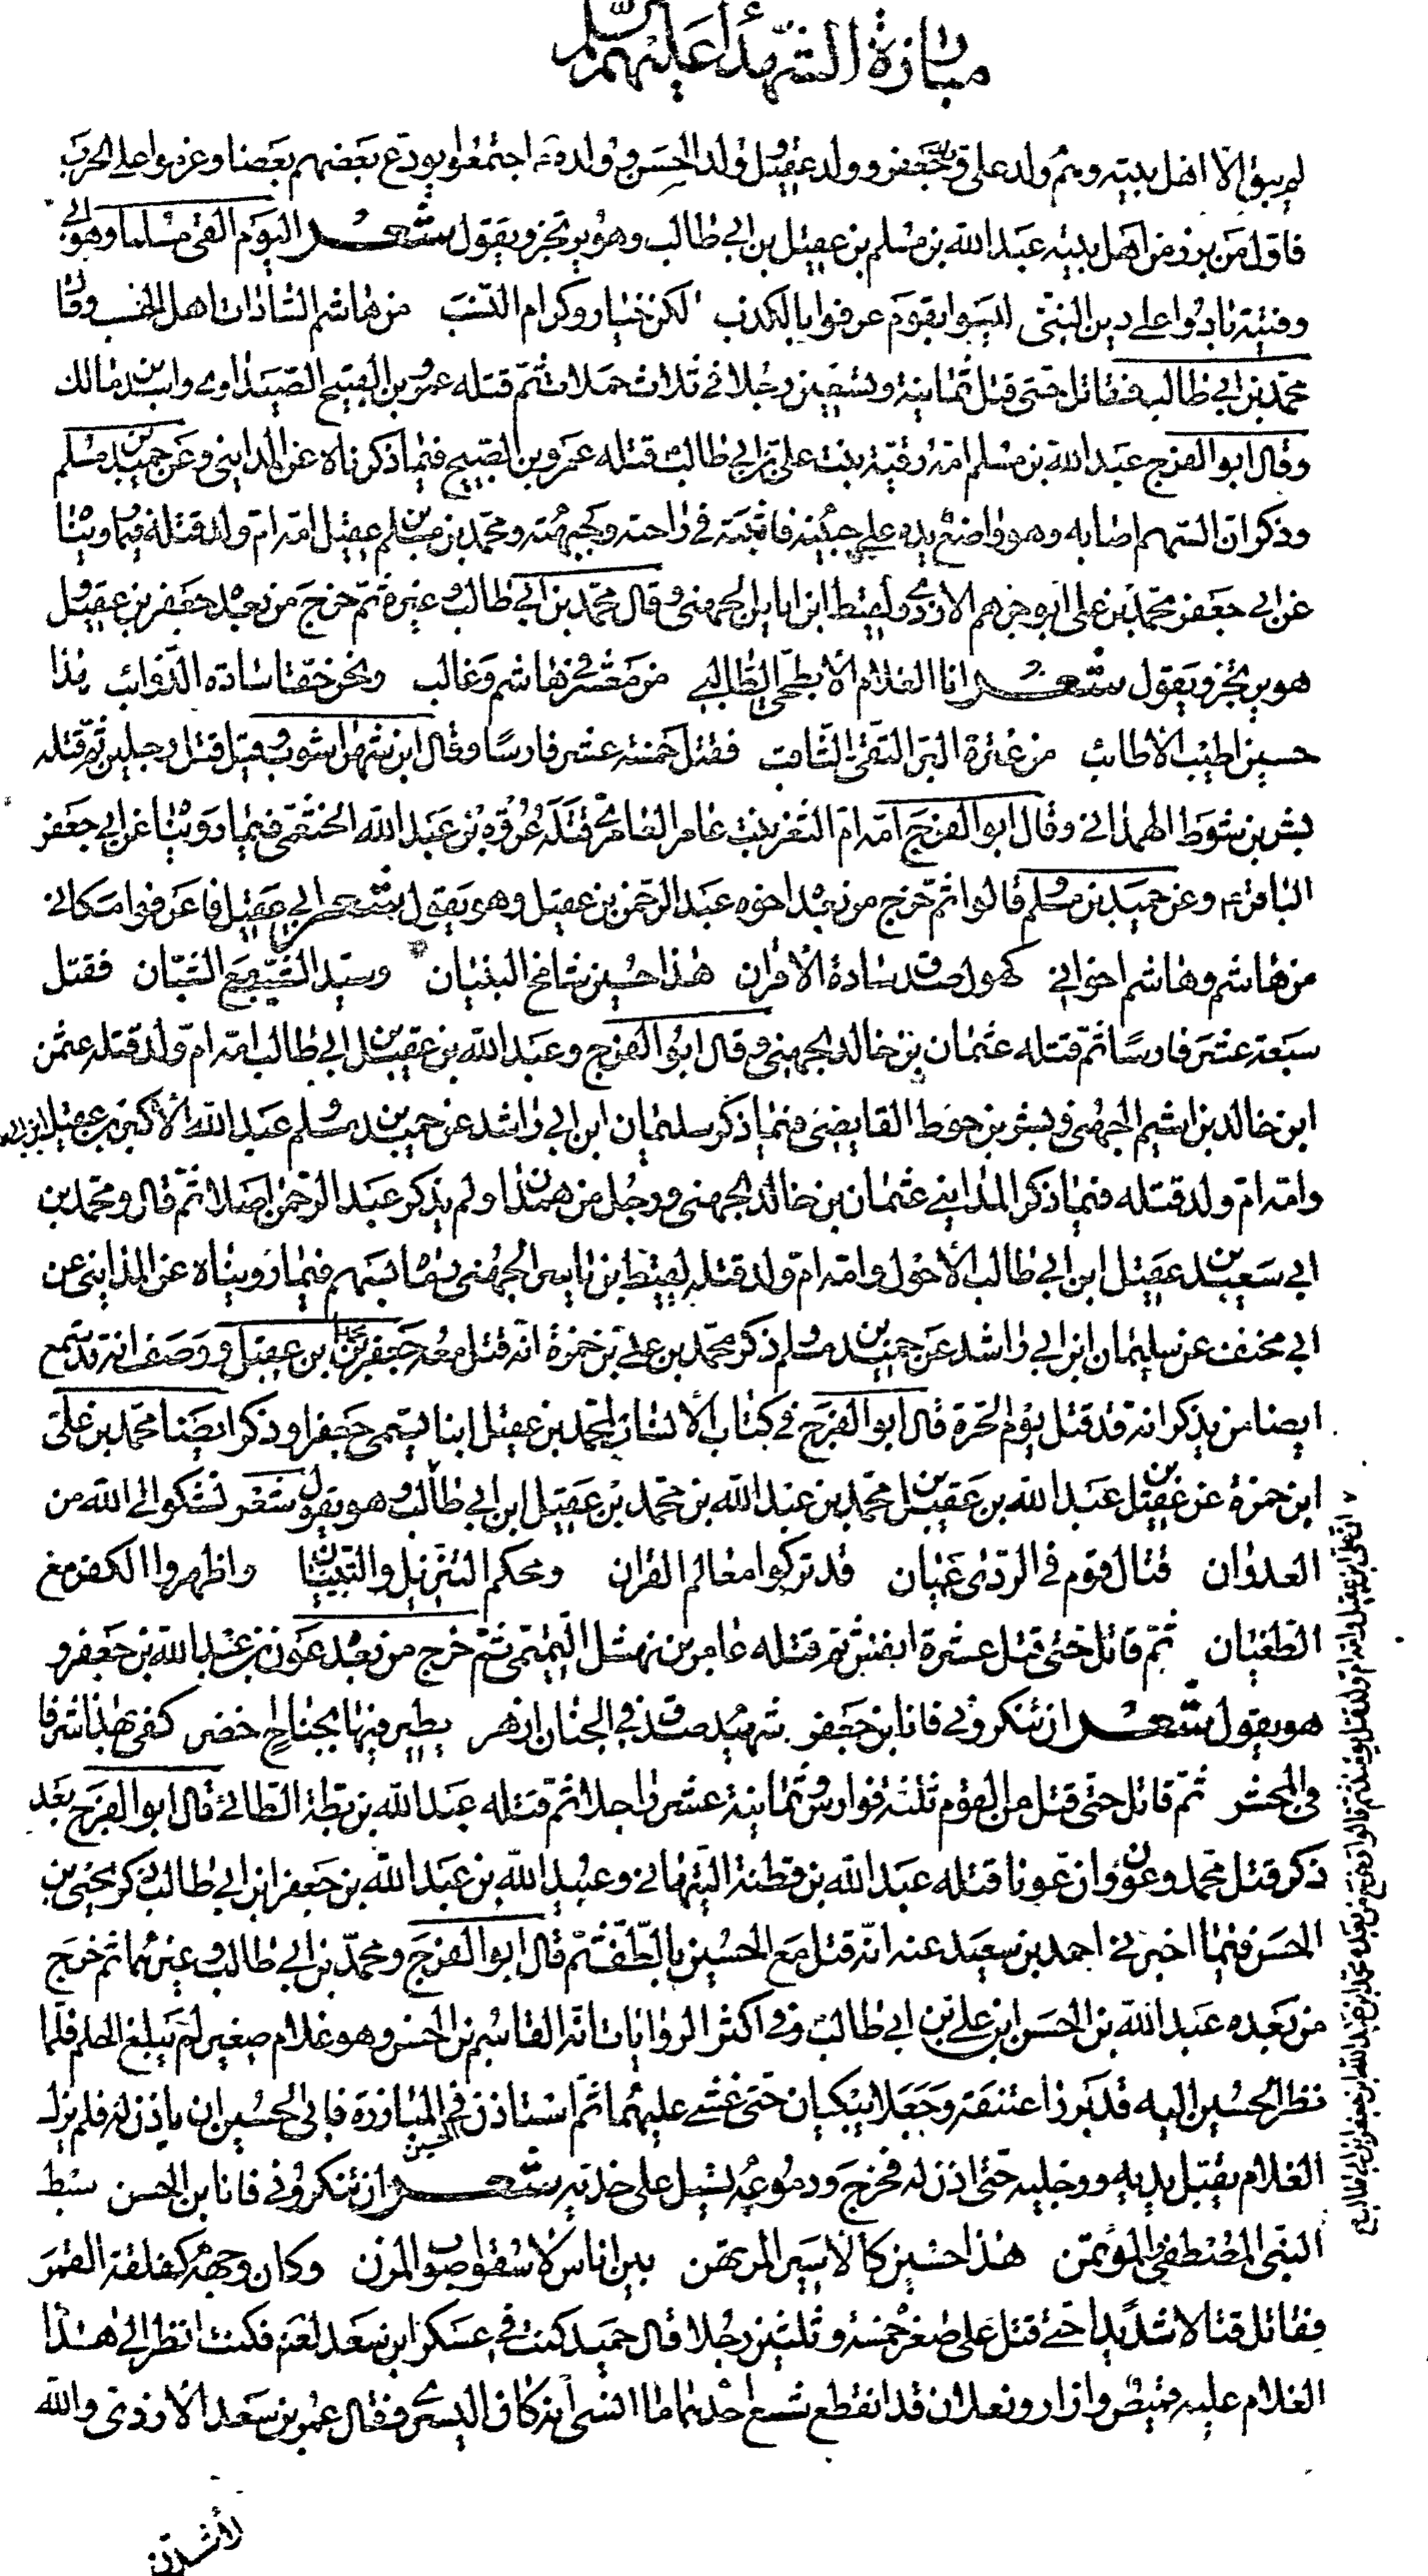 مبارزة الشهدا عليهم السلم
لم يبق الا اهل بيته وهم ولد علي وولد جعفر وولد عقيل وولد الحسن وولده ع اجتمعوا يودع بعضهم بعضا وعزموا على الحرب
فاول من برز من اهل بيته عبد الله بن مسلم بن عقيل بن ابي طالب وهو يرتجز ويقول شعر اليوم القى مسلما وهو ابي
وفتية بادوا على دين النبي ليسوا بقوم عرفوا بالكذب لكن خيار وكرام النسب من هاشم السادات اهل الحسب وقال
محمد بن ابي طالب فقاتل حتى قتل ثمانية وتسعين رجلا في ثلاث حملات ثم قتله عمرو بن الصبيح الصيداوي واسد بن مالك
وقال ابو الفرج عبد الله بن مسلم امه رقية بنت علي بن ابي طالب قتله عمرو بن الصبيح فيما ذكرناه عن المدايني وعن حميد بن مسلم
وذكر ان السهم اصابه وهو واضع يده على جبينه فاثبته في راحته وجبهته ومحمد بن مسلم بن عقيل امه ام ولد قتله فيما روينا
عن ابي جعفر محمد بن علي ابو جرهم الازدي ولقيط ابن اياس الجهني وقال محمد بن ابي طالب وغيره ثم خرج من بعده جعفر بن عقيل و
هو يرتجز ويقول شعر انا الغلام الابطحي الطالبي من معشر في هاشم وغالب ونحن حقا سادة الذوائب هذا
حسين اطيب الاطائب من عترة البر التقي الثاقب فقتل خمسة عشر فارسا وقال ابن شهراشوب وقيل قتل رجلين ثم قتله
بشر بن سوط الهمداني وقال ابو الفرج امه ام الثغر بنت عامر العامري قتله عروة بن عبد الله الخثعمي فيما رويناه عن ابي جعفر
الباقر ع وعن حميد بن مسلم قالوا ثم خرج من بعده اخوه عبد الرحمن بن عقيل وهو يقول شعر ابي عقيل فاعرفوا مكاني
من هاشم وهاشم اخواني كهول صدق سادة الاقران هذا حسين شامخ البنيان وسيد الشيب مع الشبان فقتل
سبعة عشر فارسا ثم قتله عثمان بن خالد الجهني وقال ابو الفرج وعبد الله بن عقيل بن ابي طالب امه ام ولد قتله عثمن
ابن خالد بن اشيم الجهني وبشر بن حوط القابضي فيما ذكر سليمان ابن ابي راشد عن حميد بن مسلم وعبد الله الاكبر بن عقيل ابن ابي طالب
وامه ام ولد قتله فيما ذكر المدايني عثمان بن خالد الجهني ورجل من همدان ولم يذكر عبد الرحمن اصلا ثم قال ومحمد بن
ابي سعيد بن عقيل ابن ابي طالب الاحول وامه ام ولد قتله لقيط بن ياسر الجهني رماه بسهم فيما رويناه عن المدايني عن
ابي مخنف عن سليمان ابن ابي راشد عن حميد بن مسلم وذكر محمد بن علي بن حمزة انه قتل معه جعفر بن محمد بن عقيل ووصف انه قد سمع
ايضا من يذكر انه قد قتل يوم الحرة قال ابو الفرج في كتاب الانساب لمحمد بن عقيل ابنا يسمى جعفرا وذكر ايضا محمد بن علي
ابن حمزة عن عقيل بن عبد الله بن عقيل بن محمد بن عبد الله بن محمد بن عقيل ابن ابي طالب وهو يقول شعر نشكو الى الله من
العدوان قتال قوم في الردى عميان قد تركوا معالم القران ومحكم التنزيل والتبيان واظهروا الكفر مع
الطغيان ثم قاتل حتى قتل عشرة انفس ثم قتله عامر بن نهشل التيمي ثم خرج من بعده عون بن عبد الله بن جعفر و
هو يقول شعر ان تنكروني فانا ابن جعفر شهيد صدق في الجنان ازهر يطير فيها بجناح اخضر كفى بهذا شرفا
في المحشر ثم قاتل حتى قتل من القوم ثلثة فوارس وثمانية عشر راجلا ثم قتله عبد الله بن بطة الطائي قال ابو الفرج بعد
ذكر قتل محمد وعون وان عونا قتله عبد الله بن قطنة التيهاني وعبيد الله بن عبد الله بن جعفر ابن ابي طالب ذكر يحيى بن
الحسن فيما اخبرني احمد بن سعيد عنه انه قتل مع الحسين بالطف ثم قال ابو الفرج ومحمد بن ابي طالب وغيرهما ثم خرج
من بعده عبد الله بن الحسن ابن علي بن ابي طالب وفي اكثر الروايات انه القاسم بن الحسن وهو غلام صغير لم يبلغ الحلم فلما
نظر الحسين اليه قد برز اعتنقه وجعلا يبكيان حتى غشي عليهما ثم استاذن الحسين في المبارزة فابى الحسين ان ياذن له فلم يزل
الغلام يقبل يديه ورجليه حتى اذن له فخرج ودموعه تسيل على خديه شعر ان تنكروني فانا ابن الحسن سبط
النبي المصطفى والمؤتمن هذا حسين كالاسير المرتهن بين اناس لا سقوا صوب المزن وكان وجهه كفلقة القمر
فقاتل قتالا شديدا حتى قتل على صغره خمسة وثلثين رجلا قال حميد كنت في عسكر ابن سعد لعنه فكنت انظر الى هذا
الغلام عليه قميص وازار ونعلان قد انقطع شسع احدهما ما انسى انه كان اليسرى فقال عمر بن سعد الازدي والله
لاشدن